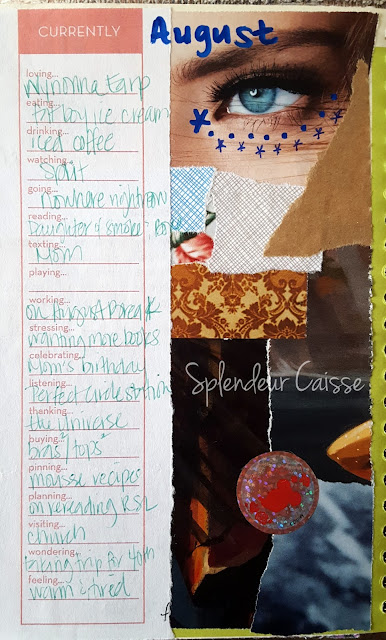 CURRENTLY
August
loving...
Wynonna Earp
eating...
fat boy ice cream
drinking...
iced coffee
watching...
Split
going...
nowhere right now
reading...
Daughter of smoke & Bone
texting...
Mom
playing...
working...
on August Break
stressing...
wanting more books
celebrating...
Mom's birthday
listening...
Perfect Circle station
thanking...
the Universe
buying...
bras / tops
pinning...
mousse recipes
planning...
on rereading RSL
visiting...
church
wondering...
taking trip for 40th
feeling...
warm & tired
Splendeur Caisse